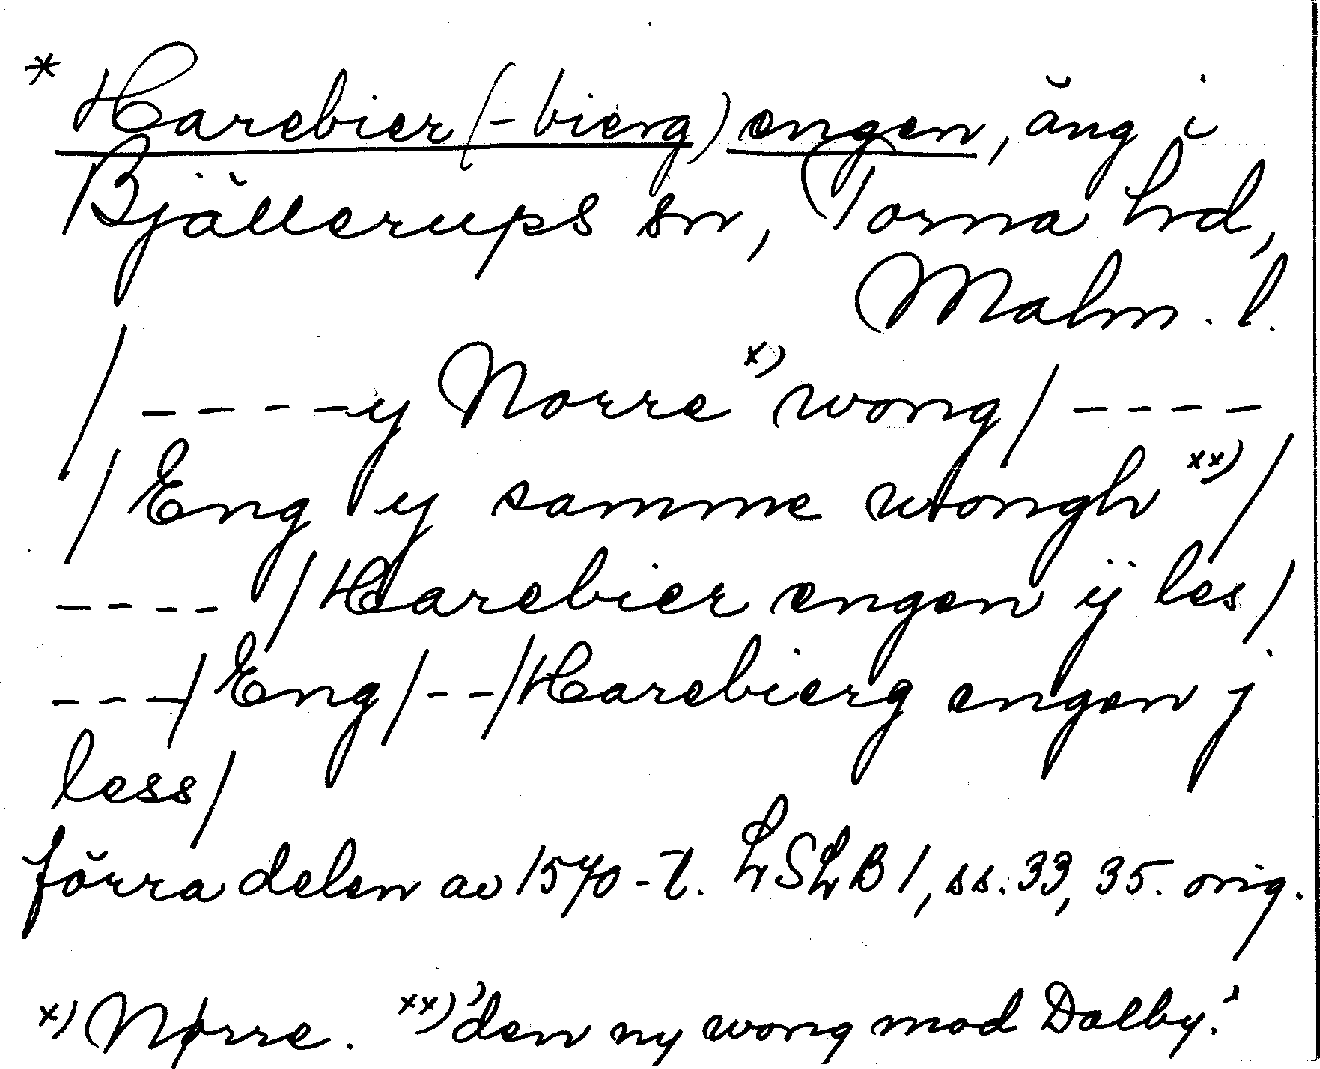 * Harebier(-bierg) engen, äng i
Bjällerups sn, Torna hd,
Malm. l.
/ ----y Norre x) wong/ ----
/Eng y samme wongh xx)/
---- /Harebier engen ij les/
---/Eng/--/Harebierg engen j
less/
förra delen av 1570-t. LSLB 1, ss. 33, 35. orig.
x) Nørre. xx) 'den ny wong mod Dalby.'